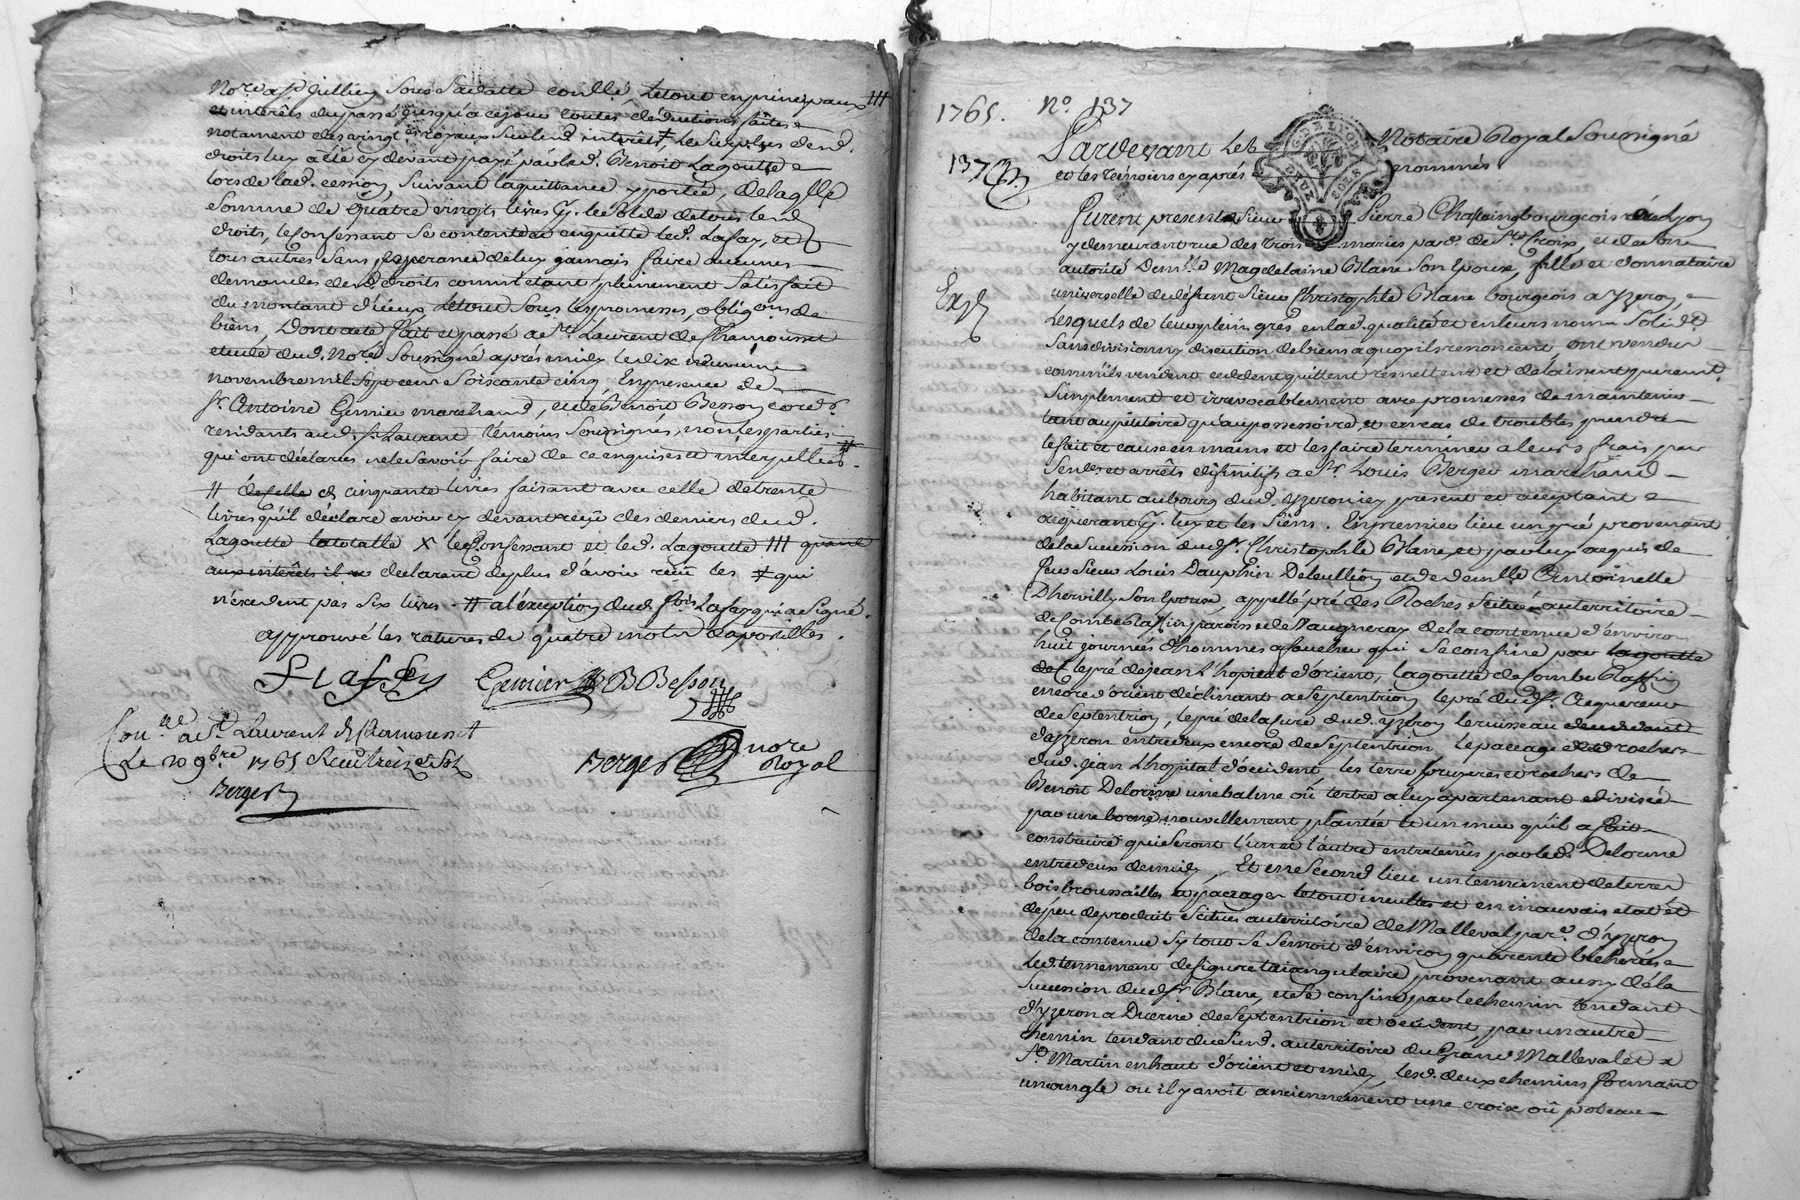 et interêts du passé jusqu'a ce jour toutes déductions faites
notament des vingt
droits luy a été cy devant payé par led. Benoit Lagoutte
lors de lad. cession, suivant la quittance y portée, de la
somme de quatre vingts livres
droits, le confessant se contente et en quitte led. Lafay, et
tous autres sans esperance de luy jamais faire aucunes
demandes desd. droits comm'étant pleinement satisfait
du montant d'iceux, le tout sous les promesses, obligōns de
biens, Dont acte fait et passé a St. Laurent de Chamousset
etude dud. Nore. soussigné apres midy le dix neuvieme
novembre mil sept cent soixante cinq, En presence de
Sr. Antoine Grenier marchand, et de Benoit Besson cordr.
residants aud. St. Laurent témoins soussignés, non les parties
qui ont déclarés ne le savoir faire de ce enquises et interpellées.
cinquante livres faisant avec celle de trente
livres qu'il déclare avoir cy devant reçûe des deniers dud.
Lagoutte la totalle X le confessant et led. Lagoutte III quant
aux interêts il declarant de plus d'avoir reçûe les ‡ qui
n'excedent pas six livres. # a l'exception dud. Lafay qui a signé.
approuvé les ratures de quatre mots apostilles.
Grenier B Besson
Con.lé a St. Laurent de Chamousset
Le 20 9bre. 1765 Reçu treize sols
Berger
Berger nore Royal
1765. No. 137
137
Pardevant Le Notaire Royal Soussigné
et les temoins cy aprés nommés
GEN LYON
DEUX SOLS
Furent presents Sieur Pierre Chastaing bourgeois de Lyon
y demeurant rue des trois maries parse. de Ste. Croix, et de son
autorité Demlle. Magdelaine Blanc son Epouse, fille et donnataire
universelle du défunt Sieur Christophle Blanc bourgeois a Yzeron,
Lesquels de leur plein grés en lad. qualité et en leurs noms solide.
sans division ny discution de biens a quoy ils renoncent, ont vendu
comm'ils vendent cedent quittent remettent et délaissent purement
simplement et irrevocablement avec promesses de maintenir
tant au pétitoire qu'au possessoire, et en cas de troubles prendre
le fait et cause en mains et les faire terminer a leurs frais par
sences. et arrêts définitifs a Sr. Louis Berger marchand
habitant au bourg dud. Yzeron icy present et acceptant
aquerant p. luy et les siens. En premier lieu un pré provenant
de la succession dud. Sr. Christophle Blanc, et par luy acquis de
feu Sieur Louis Dauphin Deleullion et de demlle. Antoinette
Dhervilly son Epouse, appellé pré des Roches scitué au territoire
de Combe Raffin paroisse de Vaugneray de la contenue d'environ
huit journées d'hommes a faucher qui se confine par
le pré de Jean L'hopital d'orient, la goutte de Combe Raffin
encore d'orient déclinant a septentrion, le pré dud. Sr. Acquereur
de septentrion, le pré de la cure dud. Yzeron le ruisseau
d'Yzeron entredeux encore de septentrion le paccage et rochers
dud. Jean Lhopital d'occident, les terre bruyeres et rochers de
Benoit Delorme une balme oû tertre a luy apartenant et divisée
par une borne nouvellement plantée et un mur qu'il a fait
construire qui seront l'un et l'autre entretenûs par led. Delorme
entredeux de midy, Et en second lieu un tennement de terres
bois broussailles et paccages le tout incultes et en mauvais etat et
de peu de produit scitués au territoire de Malleval parse. d'Yzeron
de la contenue sy tout se semoit d'environ quarente bicherées
Led. tennement de figure triangulaire, provenant aussy de la
succession dud. Sr. Blanc, et se confine par le chemin tendant
d'Yzeron a Duerne de septentrion et occident par un autre
chemin tendant dud. au territoire du Grand Malleval et a
St. Martin en haut d'orient et midy lesd. deux chemins formant
un angle ou il y avoit anciennement une croix oû poteau